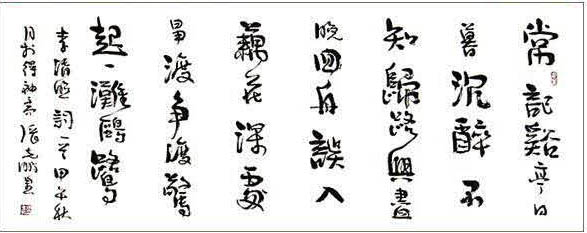 常記谿亭日
暮沉醉不
知歸路興盡
晚回舟誤入
藕花深處
爭渡争渡驚
起一灘鷗鷺
李清照詞一首甲午秋
月於